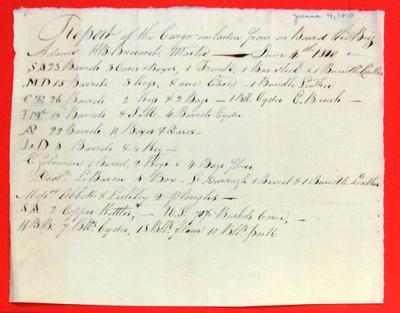 June 4, 1810
Report of the Cargo unladen from on Board the Brig
Adams H.B. Brevoort, Master — June 4th 1810
S A 23 Barrels 3 Cases & Boxes, 1 Trunk, 1 Bar Steel & 1 Bundle Leather
M D 15 Barrels 3 Kegs, & one Case 1 Bundle Leather
C B 26 Barrels 2 Kegs & 2 Bags — 1 Bll. Cyder E. Brush —
18 Barrels & 4 Barrels Cyder
22 Barrels 11 Boxes & Cases —
I. D 8 Barrels & 4 Keg —
E. Solomon 1 Barrel, 2 Kegs & 4 Bags Flour
LeBaron 1 Box — Dr. 1 Barrel & 1 Bundle Leather
Messrs. Abbott & 2 Ploughs —
S A 2 Copper Kettles, — U.S. Bushels Corn, —
H.B.B. 7 Blls. Cyder, 18 Blls. flour 10 Blls. pork